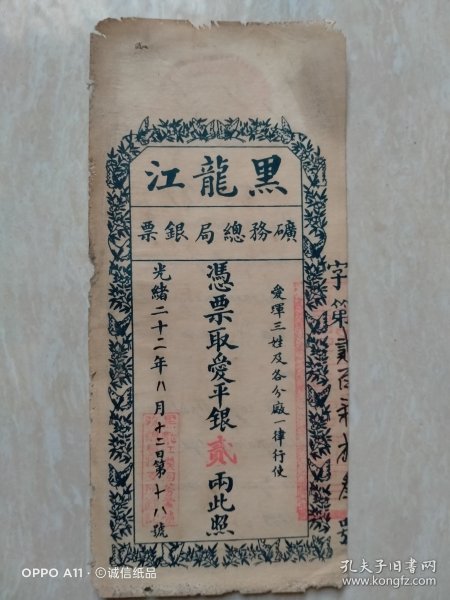 黑龍江
礦務總局銀票
字第貳百
愛琿三姓及各分廠一律行使
憑票取愛平銀貳兩此照
光緒二十二年八月十二日第十八號
OPPO A11 · ©诚信纸品
孔夫子旧书网
www.kongfz.com